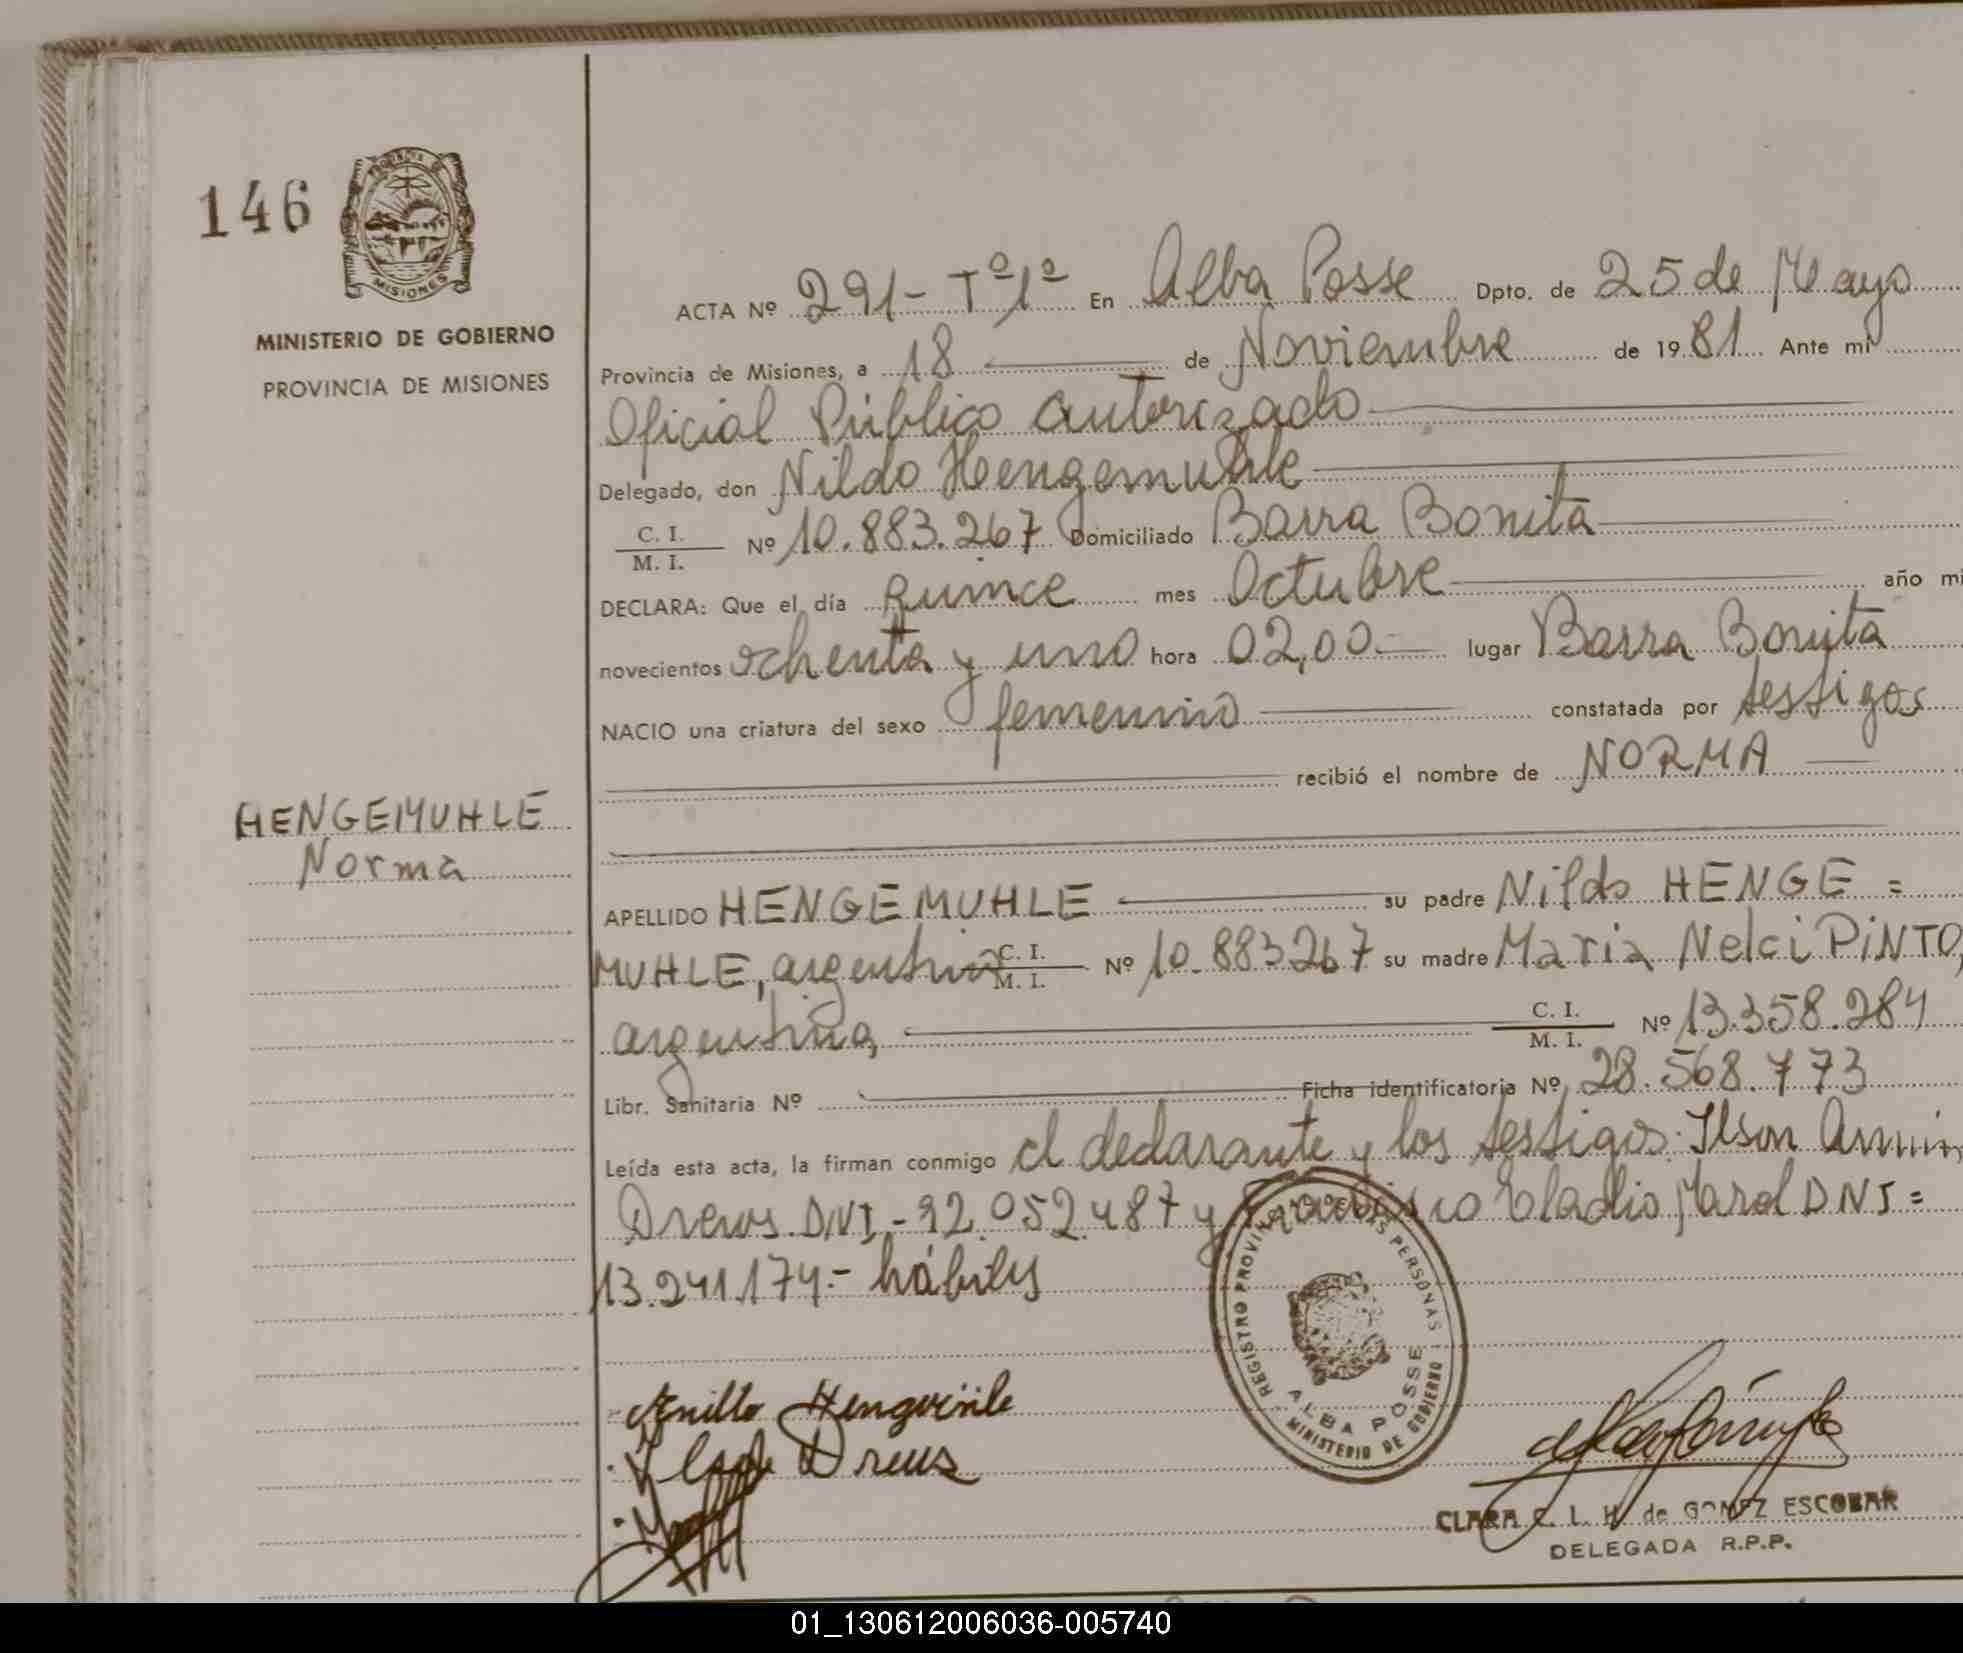 146
PROVINCIA DE
MISIONES
MINISTERIO DE GOBIERNO
PROVINCIA DE MISIONES
ACTA Nº 291- Tº1º En Alba Posse Dpto. de 25 de Mayo
Provincia de Misiones, a 18 de Noviembre de 1981 Ante mi
Oficial Público autorizado
Delegado, don Nildo Hengemuhle
C. I.
M. I. Nº 10.883.267 Domiciliado Barra Bonita
DECLARA: Que el día quince mes Octubre año mi
novecientos ochenta y uno hora 02,00 lugar Barra Bonita
NACIO una criatura del sexo femenino constatada por testigos
recibió el nombre de NORMA
HENGEMUHLE
Norma
APELLIDO HENGEMUHLE su padre Nildo HENGE =
MUHLE, argentino C. I.
M. I. Nº 10.883267 su madre Maria Nelci PiNTO,
argentina, C. I.
M. I. Nº 13.358.284
Libr. Sanitaria Nº Ficha identificatoria Nº 28.568.773
Leída esta acta, la firman conmigo el declarante y los testigos: Ilson
Drews DNI - 92.052.487 y Eladio DNI =
13.241.174.- hábiles
REGISTRO PROVINCIAL DE LAS PERSONAS
ALBA POSSE
MINISTERIO DE GOBIERNO
Dreus
CLARA C. L. H. de GOMEZ ESCOBAR
DELEGADA R.P.P.
01_130612006036-005740